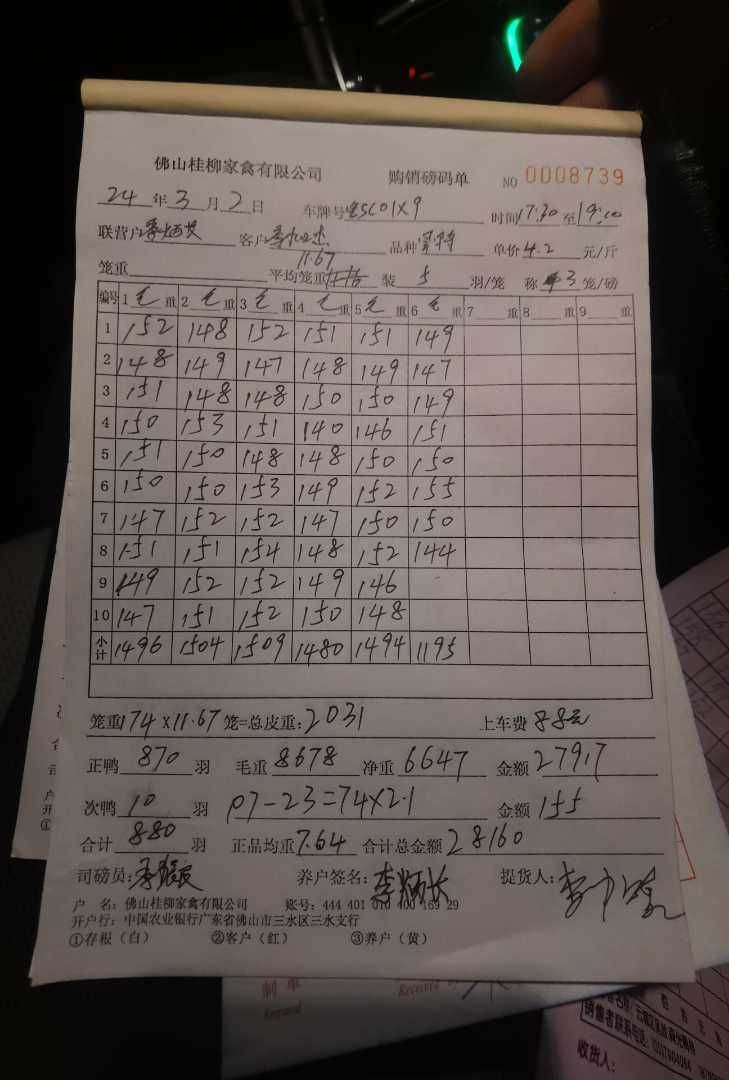 佛山桂柳家禽有限公司 购销磅码单 NO 0008739
24 年 3 月 2 日 车牌号 时间17:30 至19:00
联营户 客户 品种 单价 4.2 元/斤
11.67
笼重 平均笼重 装 5 羽/笼 称 3 笼/磅
编号 1 毛 重 2 毛 重 3 毛 重 4 毛 重 5 毛 重 6 毛 重 7 重 8 重 9 重
1 152 148 152 151 151 149
2 148 149 147 148 149 147
3 151 148 148 150 150 149
4 150 153 151 140 146 151
5 151 150 148 148 150 150
6 150 150 153 149 152 155
7 147 152 152 147 150 150
8 151 151 154 148 152 144
9 149 152 152 149 146
10 147 151 152 150 148
小计 1496 1504 1509 1480 1494 1195
笼重174×11.67 笼=总皮重:2031 上车费 88元
正鸭 870 羽 毛重 8678 净重 6647 金额 27917
次鸭 10 羽 97-23=74×2.1 金额 155
合计 880 羽 正品均重 7.64 合计总金额 28160
司磅员: 养户签名: 李炳长 提货人:
户 名: 佛山桂柳家禽有限公司 账号: 444 401 010 400 169 29
开户行: 中国农业银行广东省佛山市三水区三水支行
①存根(白) ②客户(红) ③养户(黄)
制 单
Received by
收货人: